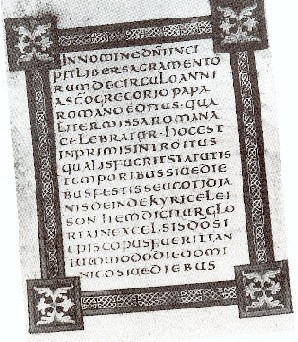 INNOMINEDNIINCI
PITLIBERSACRAMENTO
RUMDECIRCULOANNI
ASCOGREGORIO PAPA
ROMANOEDITUS·QUA
LITERMISSAROMANA
CELEBRATUR·HOCEST
INPRIMISINTROITUS
QUALISFUERITSTATUTIS
TEMPORIBUSSIUEDIE
BUSFESTISSEUCOTIDIA
NISDEINDEKYRIEELEI
SON ITEMDICITURGLO
RIAINEXCELSISDOSI
EPISCOPUSFUERITTAN
TUMMODODIEDOMI
NICOSIUEDIEBUS